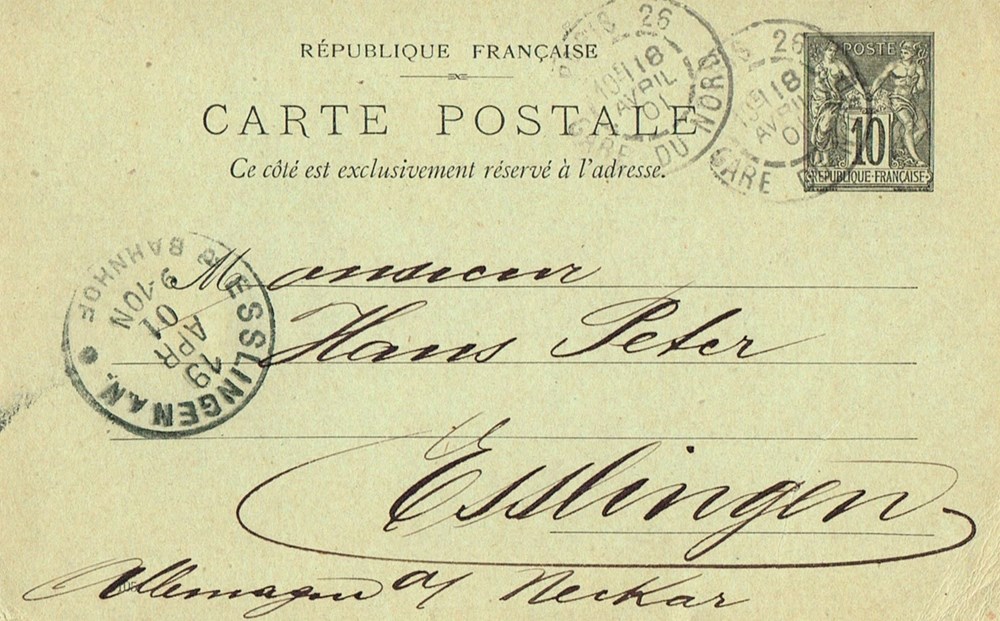 RÉPUBLIQUE FRANÇAISE
CARTE POSTALE
Ce côté est exclusivement réservé à l'adresse.
PARIS 26
18
AVRIL
01
GARE DU NORD
26
18
AVRIL
01
GARE DU NORD
POSTE
10
REPUBLIQUE-FRANÇAISE
ESSLINGEN A N.
BAHNHOF
19
APR
01
9-10N
Monsieur
Hans Peter
Esslingen
Allemagne a/ Neckar